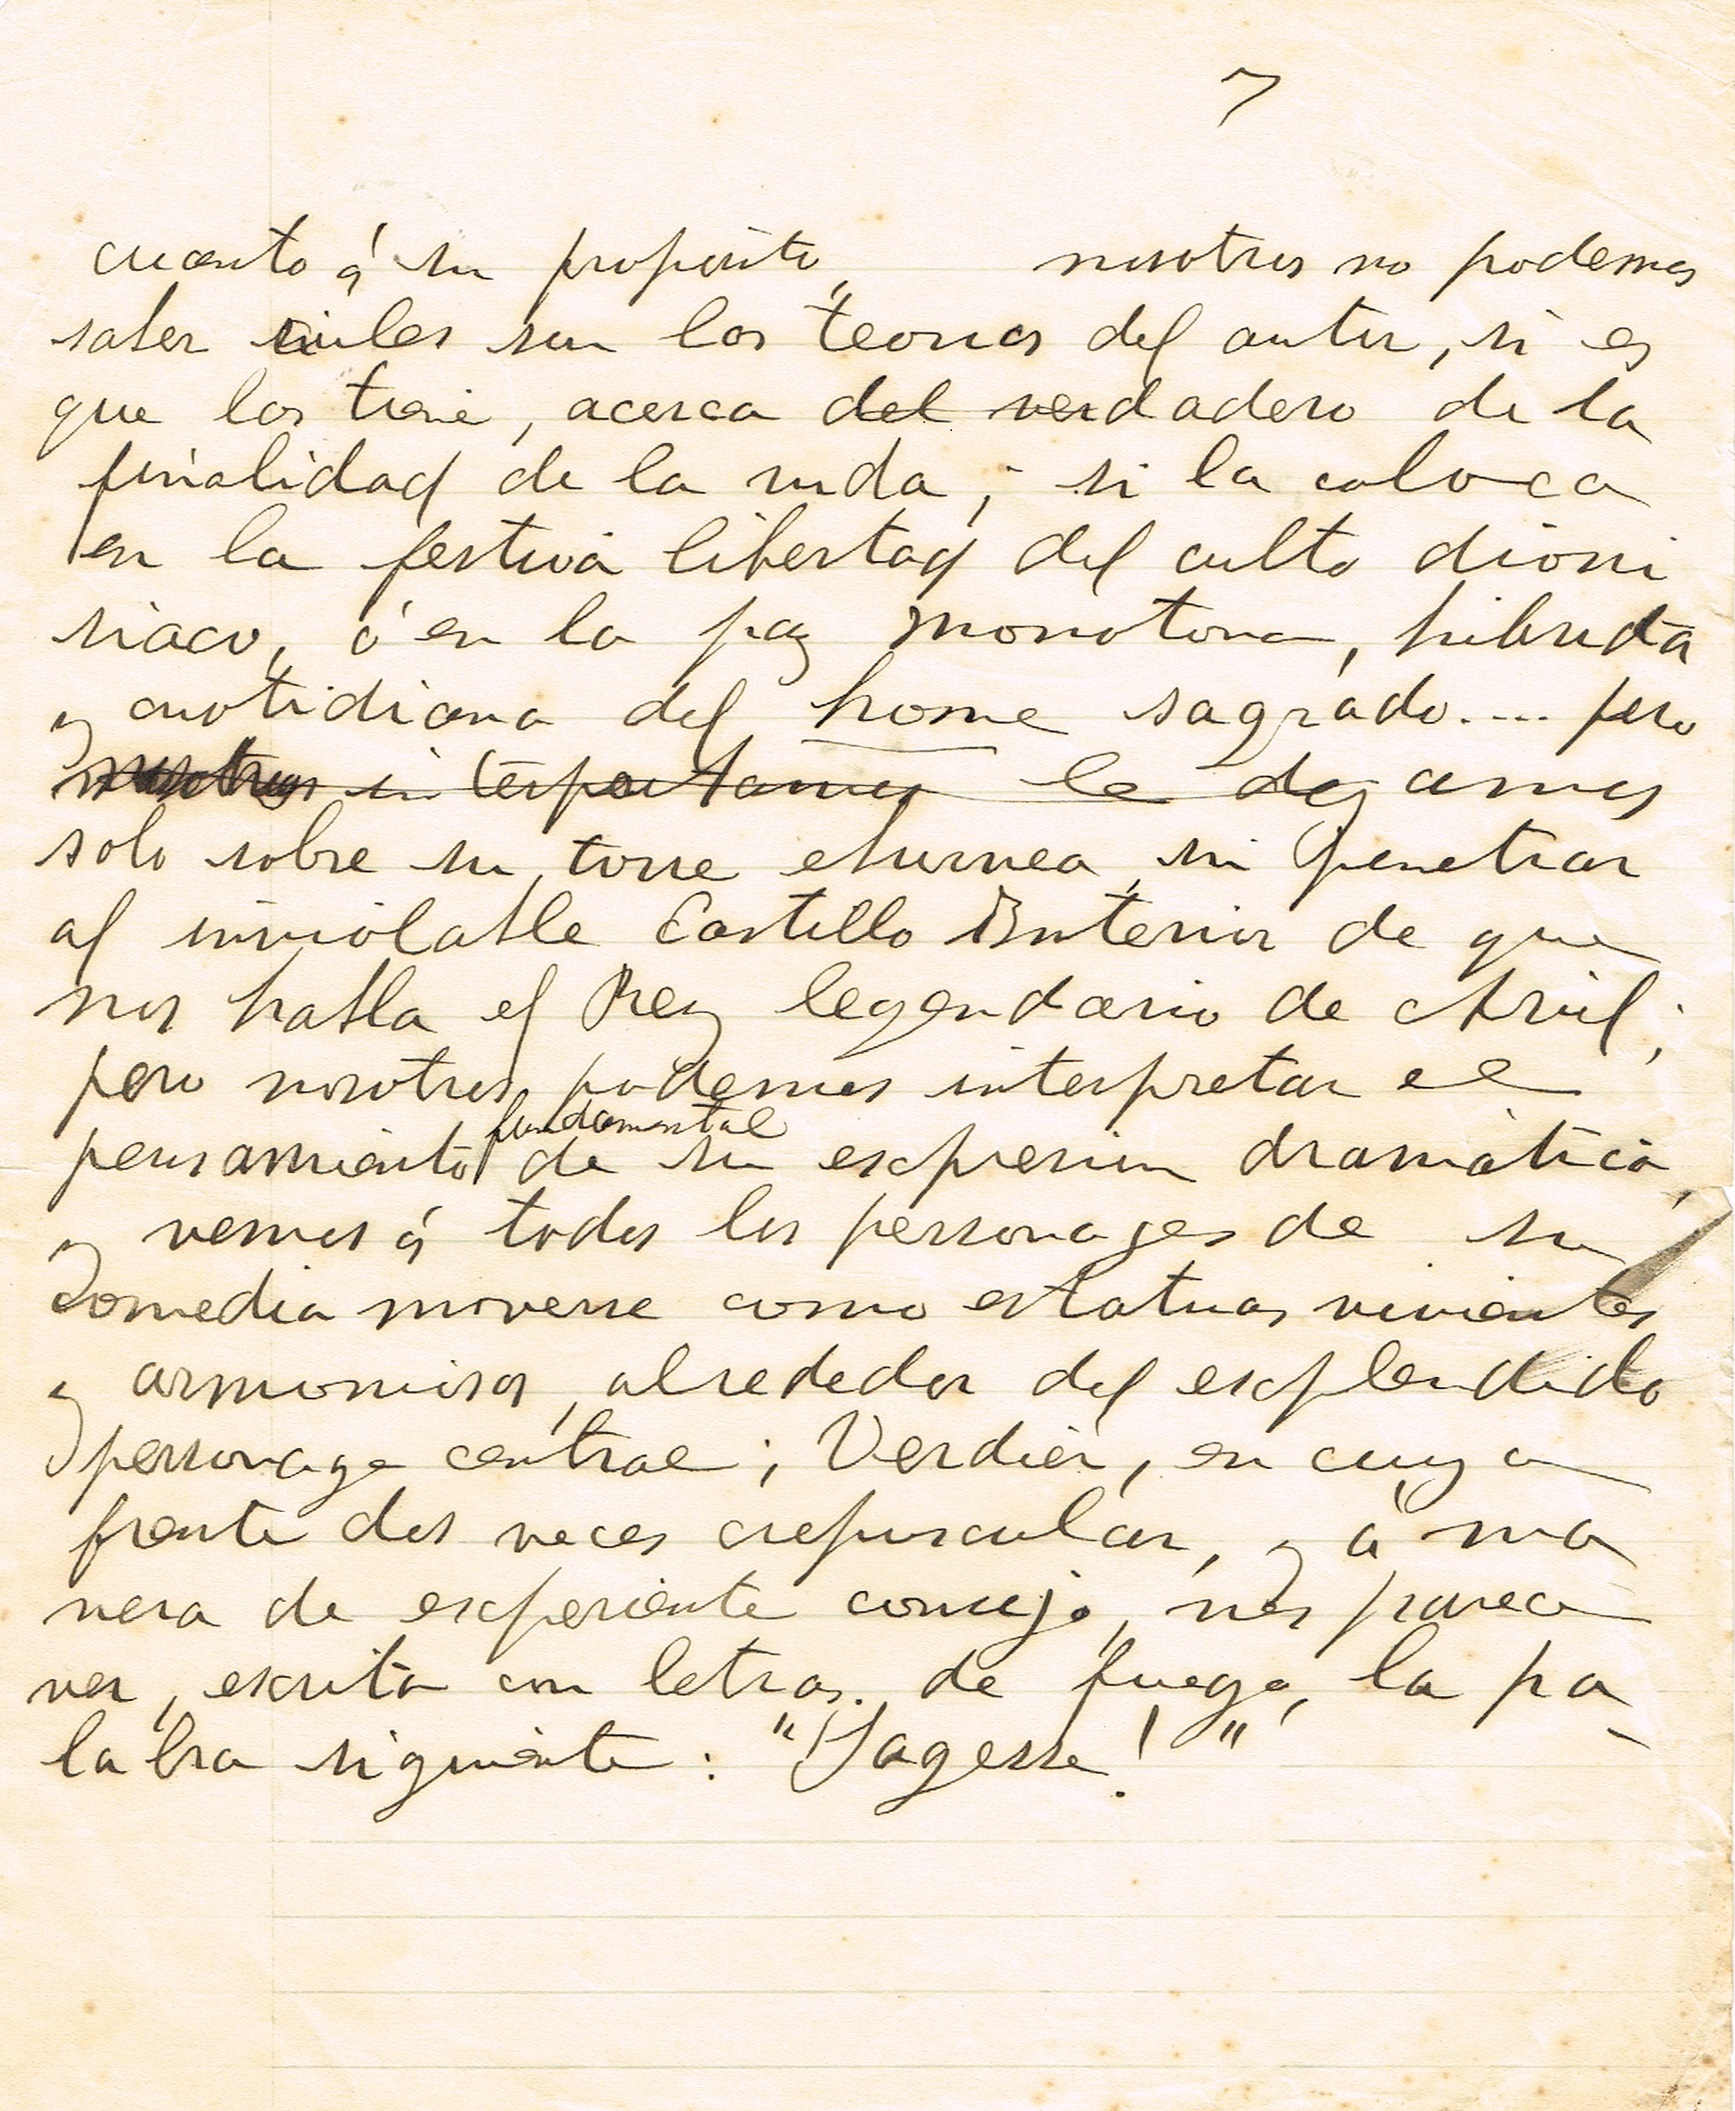 7
cuanto á su proposito, nosotros no podemos
saber cuales son las teorias del autor, si es
que las tiene, acerca del verdadero de la
finalidad de la vida; si la coloca
en la festiva libertad del culto dioni
siaco, ó en la paz monotona, hibrida
y cuotidiana del home sagrado.... pero
nosotros interpretamos le dejamos
solo sobre su torre eburnea, sin penetrar
al inviolable Castillo Interior de que
nos habla el Rey legendario de Abril;
pero nosotros podemos interpretar el
pensamiento fundamental de su expresion dramática,
y vemos á todos los personages de su
comedia moverse como estatuas vivientes
y armoniosas, alrededor del explendido
personage central; Verdier, en cuya
frente dos veces crepuscular, y á ma
nera de experiente consejo, nos parece
ver, escrita con letras de fuego, la pa
labra siguiente: "Sagesse!"